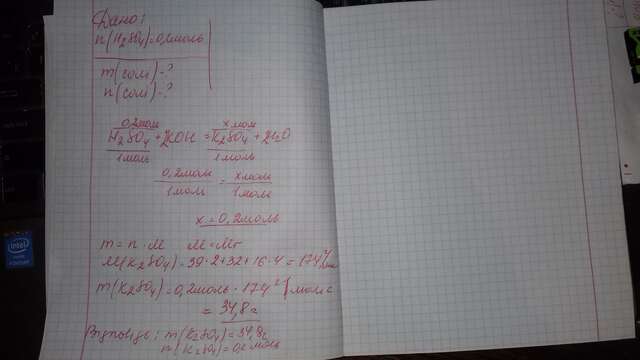 Дано:
n(H₂SO₄)=0,2моль
m(солі)-?
n(солі)-?
0,2моль x моль
H₂SO₄+2KOH=K₂SO₄+2H₂O
1моль 1моль
0,2моль = x моль
1моль 1моль
x=0,2моль
m=n·M M=Mr
M(K₂SO₄)=39·2+32+16·4=174г/моль
m(K₂SO₄)=0,2моль·174г/моль=
=34,8г
Відповідь: m(K₂SO₄)=34,8г
n(K₂SO₄)=0,2моль
intel